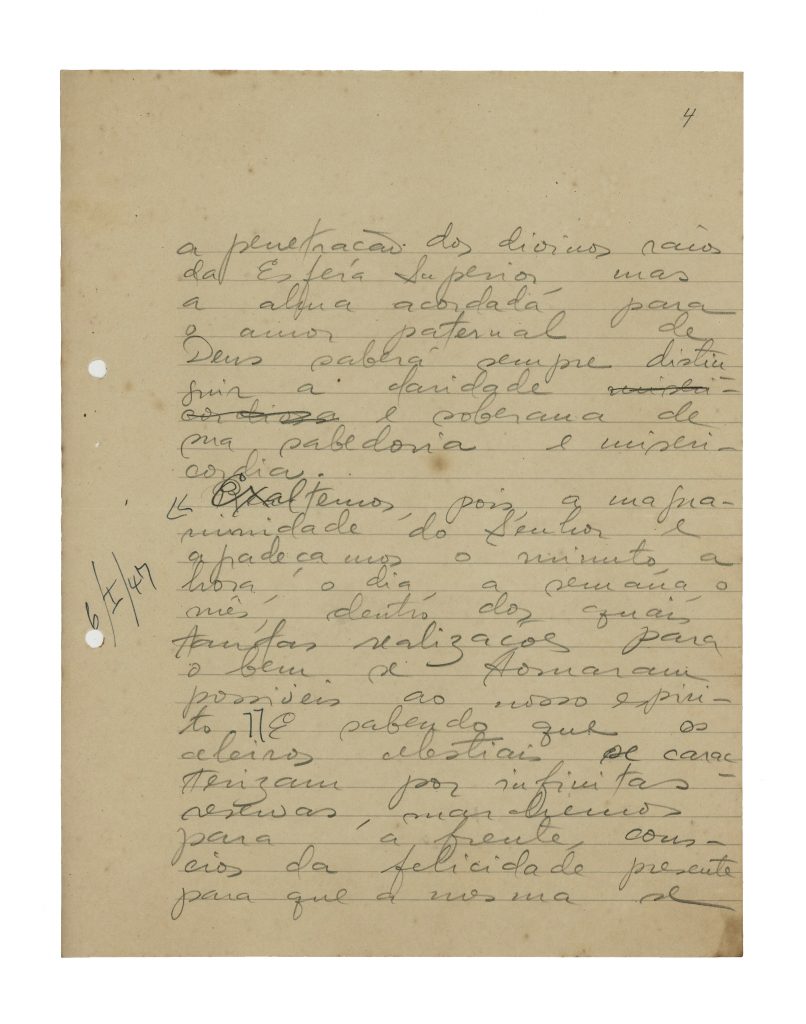 4
a penetração dos divinos raios
da Esfera Superior, mas
a alma acordada para
o amor paternal de
Deus saberá sempre distin
guir a claridade miseri-
cordiosa e soberana de
sua sabedoria e miseri-
cordia.
Exaltemos, pois, a magna-
nimidade do Senhor e
agradeçamos o minuto, a
hora, o dia, a semana, o
mês, dentro dos quais
tantas realizações para
o bem se tornaram
possiveis ao nosso espiri-
to E sabendo que os
celeiros celestiais se carac
terizam por infinitas
reservas, marchemos
para a frente, cons-
cios da felicidade presente
para que a mesma se
6/I/47